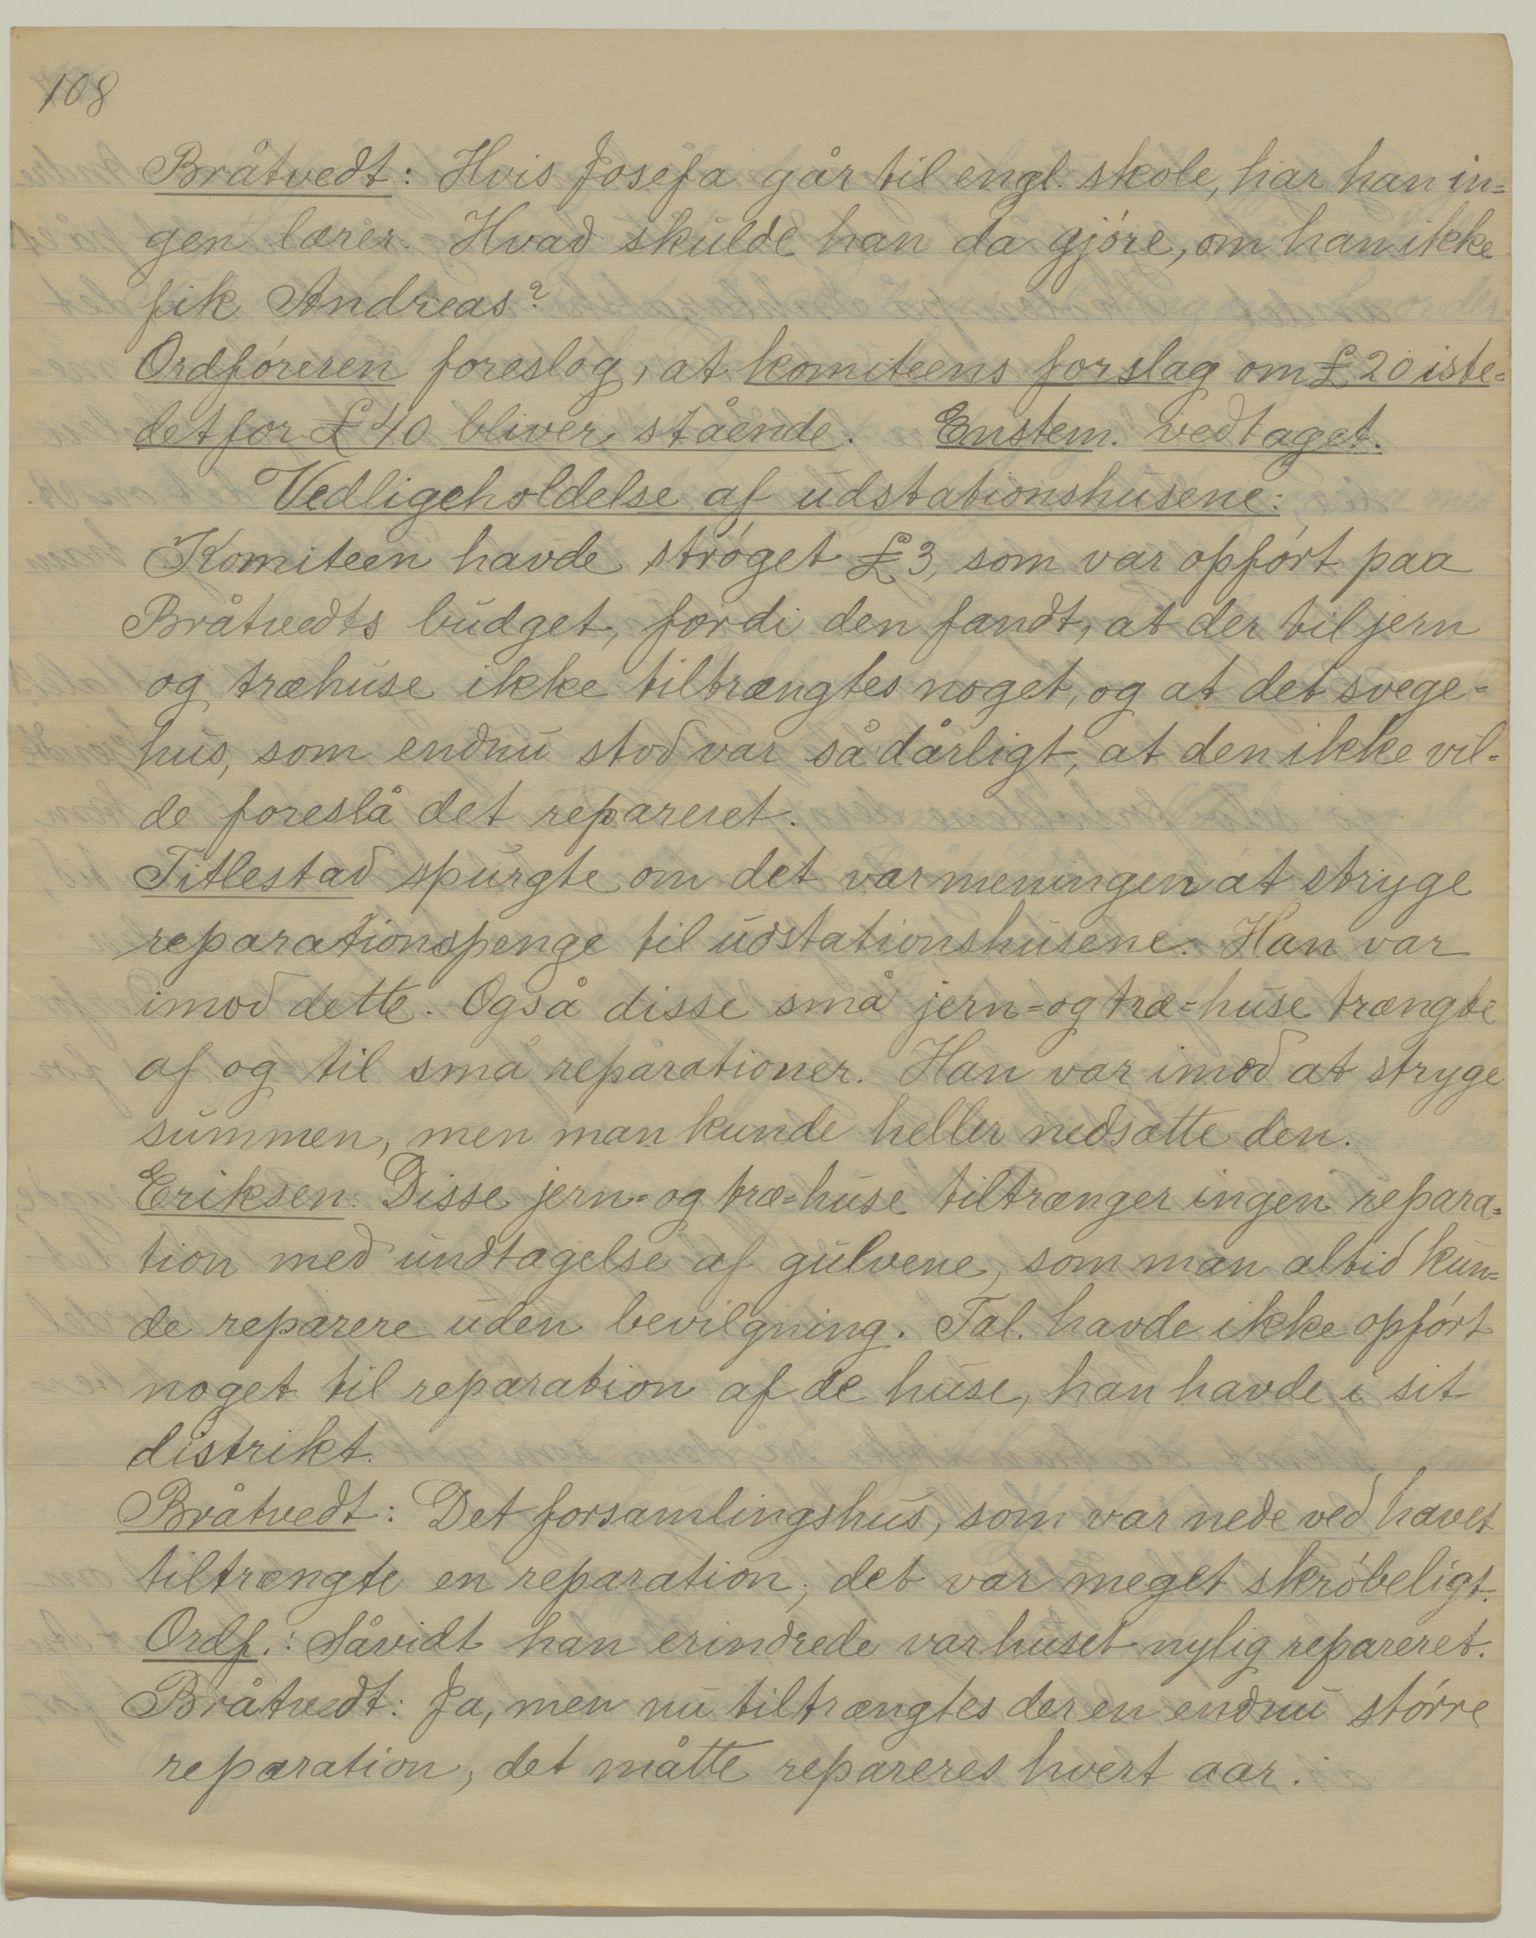 108
Bråtvedt: Hvis Josefa går til engl. skole, har han in=
gen lærer. Hvad skulde han da gjøre, om han ikke
fik Andreas?
Ordføreren foreslog, at komiteens forslag om £20 iste=
detfor £40 bliver stående. Enstem. vedtaget.
Vedligeholdelse af udstationshusene:
Komiteen havde strøget £3, som var opført paa
Bråtvedts budget, fordi den fandt, at der til jern
og træhuse ikke tiltrængtes noget, og at det svege=
hus, som endnu stod var så dårligt, at den ikke vil=
de foreslå det repareret.
Titlestad spurgte om det var meningen at stryge
reparationspenge til udstationshusene. Han var
imod dette. Også disse små jern=og træ=huse trængte
af og til små reparationer. Han var imod at stryge
summen, men man kunde heller nedsætte den.
Eriksen: Disse jern=og træ=huse tiltrænger ingen repara=
tion med undtagelse af gulvene, som man altid kun=
de reparere uden bevilgning. Tal. havde ikke opført
noget til reparation af de huse, han havde i sit
distrikt.
Bråtvedt: Det forsamlingshus, som var nede ved havet
tiltrængte en reparation; det var meget skrøbeligt.
Ordf.: Såvidt han erindrede var huset nylig repareret.
Bråtvedt: Ja, men nu tiltrængtes der en endnu større
reparation, det måtte repareres hvert aar.